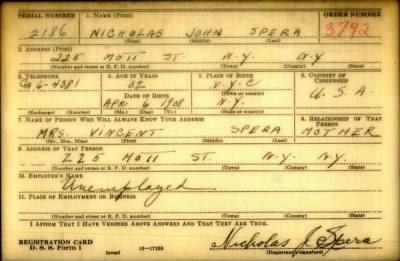 SERIAL NUMBER 1. NAME (Print) ORDER NUMBER
2186 NICHOLAS JOHN SPERA 3792
(First) (Middle) (Last)
2. ADDRESS (Print)
225 MOTT ST. N.Y. N.Y
(Number and street or R. F. D. number) (Town) (County) (State)
3. TELEPHONE 4. AGE IN YEARS 5. PLACE OF BIRTH 6. COUNTRY OF CITIZENSHIP
CA 6-4381 32 N.Y.C
DATE OF BIRTH (Town or county) U.S.A.
APR 6 1908 N.Y.
(Exchange) (Number) (Mo.) (Day) (Yr.) (State or country)
7. NAME OF PERSON WHO WILL ALWAYS KNOW YOUR ADDRESS 8. RELATIONSHIP OF THAT PERSON
MRS. VINCENT SPERA MOTHER
(Mr., Mrs., Miss) (First) (Middle) (Last)
9. ADDRESS OF THAT PERSON
225 MOTT ST. N.Y. N.Y.
(Number and street or R. F. D. number) (Town) (County) (State)
10. EMPLOYER'S NAME
Unemployed
11. PLACE OF EMPLOYMENT OR BUSINESS
(Number and street or R. F. D. number) (Town) (County) (State)
I AFFIRM THAT I HAVE VERIFIED ABOVE ANSWERS AND THAT THEY ARE TRUE.
REGISTRATION CARD
D. S. S. Form 1 (over) 16-17105 Nicholas J. Spera
(Registrant's signature)